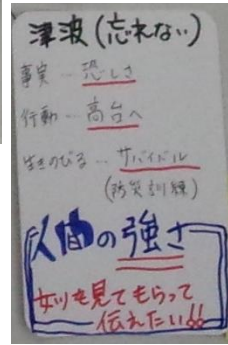 津波(忘れない)
事実…恐しさ
行動…高台へ
生きのびる…サバイバル
(防災訓練)
人間の強さ
を見てもらって
伝えたい!!